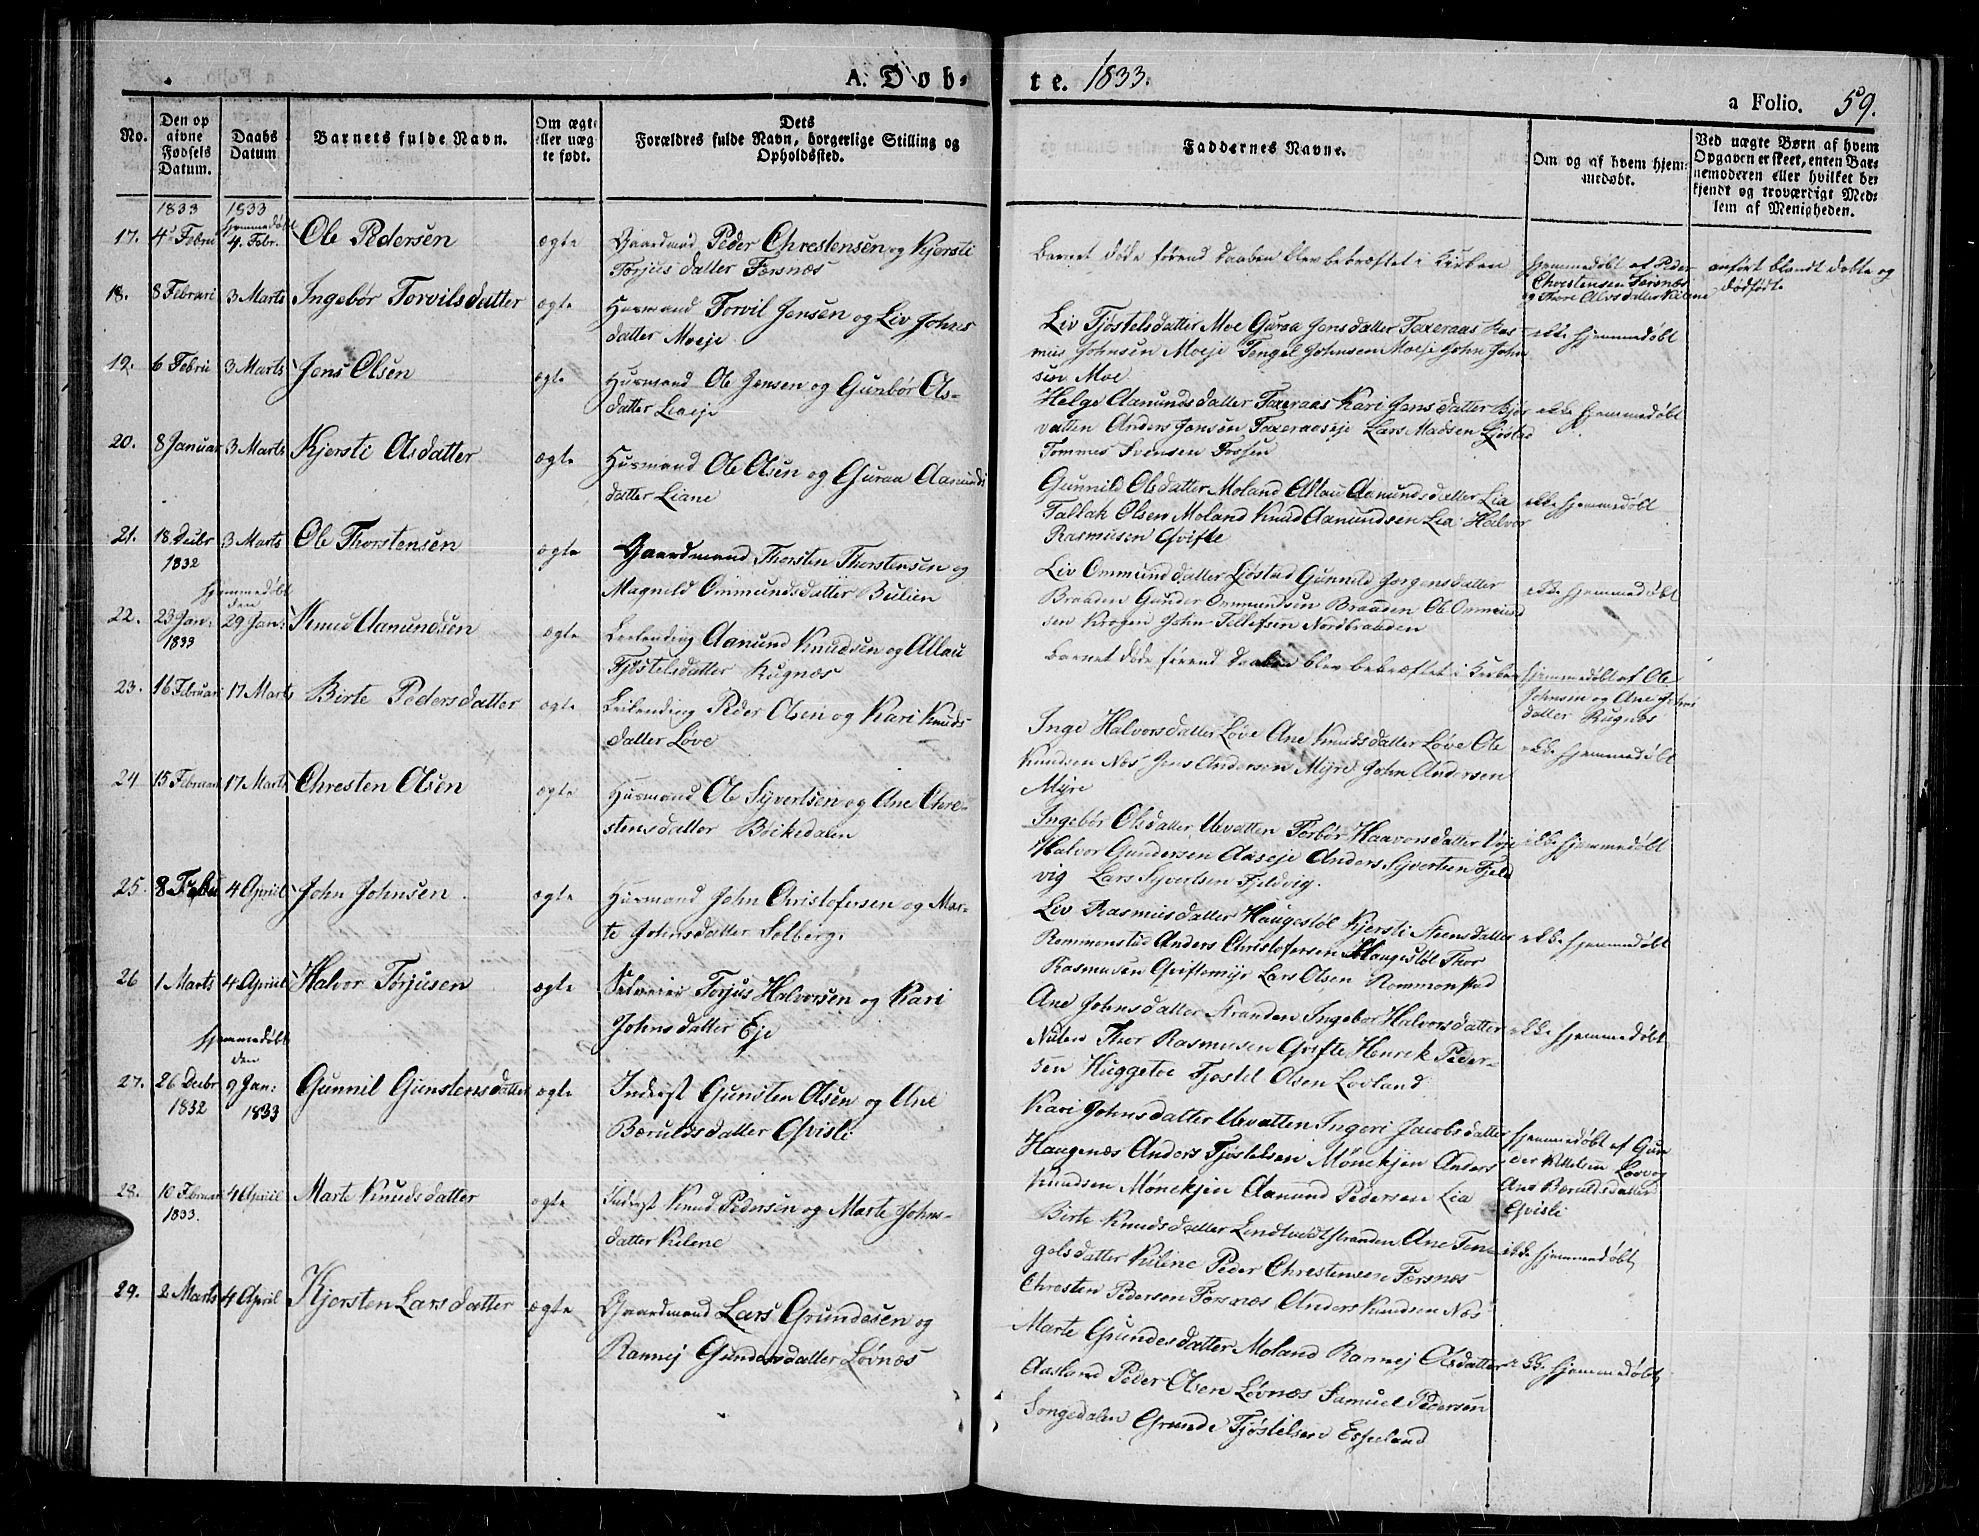 A. Døb-
te. 1833.
a Folio. 59.
No.
Den op
givne
Fødsels
Datum.
Daabs
Datum
Barnets fulde Navn.
Om ægte
eller uæg
te født.
Dets
Forældres fulde Navn, borgerlige Stilling og
Opholdssted.
Faddernes Navne.
Om og af hvem hjem-
medøbt.
Ved uægte Børn af hvem
Opgaven er skeet, enten Bar-
nemoderen eller hvilket be-
kjendt og troværdigt Med-
lem af Menigheden.
1833 1833
17. 4de Febru hjemmedøbt 4. Febr. Ole Pedersen ægte Gaardmand Peder Chrestensen og Kjersti
Torjusdatter Førsnæs
Barnet døde førend Daaben blev bekræftet i Kirken
hjemmedøbt af Peder
Chrestensen Førsnæs
og Thore Alvsdatter Kilene
anført blandt døbte og
dødfødte
18. 8 Februari 3 Marts Ingebør Torvilsdatter ægte Husmand Torvil Jensen og Liv Johns
datter Moeje
Liv Tjøstelsdatter Moe Guraa Jensdatter Taxeraas Ras
mus Johnsen Moeje Tengel Johnsen Moeje John John
sen Moe
ikke hjemmedøbt
19. 6 Febru 3 Marts Jens Olsen ægte Husmand Ole Jensen og Gunbør Ols-
datter Lieeje
Helge Aanundsdatter Taxeraas Kari Jensdatter Bjør
vatten Anders Jensen Taxeraaseje Lars Madsen Ljøstad
Tommes Svensen Fossen
ikke hjemmedøbt
20. 8 Januar 3 Marts Kjersti Olsdatter ægte Husmand Ole Olsen og Guraa Aanunds
datter Liane
Gunnild Olsdatter Moland Allau Aanundsdatter Lia
Tallak Olsen Moland Knud Aanundsen Lia Halvor
Rasmusen Qvifte
ikke hjemmedøbt
21. 18 Decbr 3 Marts Ole Thorstensen ægte Gaardmand Thorsten Thorstensen og
1832 Magnild Ommundsdatter Bulien
Liv Ommundsdatter Ljøstad Gunnild Jørgensdatter
Braaden Gunder Ommundsen Braaden Ole Ommund
sen Krogen John Tellefsen Nordbraaden
ikke hjemmedøbt
hjemmedøbt
den
22. 23 Jan: 29 Jan: Knud Aanundsen ægte Leilending Aanund Knudsen og Allau
1833 Tjøstelsdatter Rugnæs
Barnet døde førend Daaben blev bekræftet i Kirken
hjemmedøbt af Ole
Johnsen og Ane Johns
datter Rugnæs
23. 16 Februari 17 Marts Birte Pedersdatter ægte Leilending Peder Olsen og Kari Knuds
datter Løve
Inge Halvorsdatter Løve Ane Knudsdatter Løve Ole
Knudsen Næs Jens Andersen Myre John Andersen
Myre
ikke hjemmedøbt
24 15 Februari 17 Marts Chresten Olsen ægte Husmand Ole Syvertsen og Ane Chre-
stensdatter Bøikedalen
Ingebør Olsdatter Uevatten Torbør Haavorsdatter
Halvor Gundersen Aaseje Anders Syvertsen Fjeld
vig Lars Syvertsen Fjeldvig.
ikke hjemmedøbt
25. 8 Febru 4 April John Johnsen ægte Husmand John Christofersen og Mar-
te Johnsdatter Solberg.
Liv Rasmusdatter Haugestøl Kjersti Steensdatter
Rommonstad Anders Christofersen Haugestøl Thor
Rasmusen Qviftemyr Lars Olsen Rommonstad
ikke hjemmedøbt
26 1 Marts 4 April Halvor Torjusen ægte Selveier Torjus Halvorsen og Kari
Johnsdatter Eje
Ane Johnsdatter Stranden Ingebor Halvorsdatter
Nielen Thor Rasmusen Qvifte Henrik Peder-
sen Huggetoe Tjøstel Olsen Lovland
ikke hjemmedøbt
hjemmedøbt
den
27. 26 Decbr 9 Jan: Gunnil Gunstensdatter ægte Inderst Gunsten Olsen og Ane
1832 1833 Bæruldsdatter Qvisli
Kari Johnsdatter Uevatten Ingeri Jacobsdatter
Haugenæs Anders Tjøstelsen Mønekjen Anders
Knudsen Mønekjen Aanund Pedersen Lia
hjemmedøbt af Gun
Ane Bæruldsdatter
Qvisli
28. 10 Februar 4 April Marte Knudsdatter ægte Inderst Knud Pedersen og Marte Johns-
1833. datter Kilene
Birte Knudsdatter Lindtveidtstranden Ane Ten-
gelsdatter Kilene Peder Chrestensen Førsnæs
Chresten Pedersen Førsnæs Anders Knudsen Næs
ikke hjemmedøbt
29. 2 Marts 4 April Kjersten Larsdatter ægte Gaardmand Lars Grundesen og
Rannej Gundersdatter Løvnæs
Marte Grundesdatter Moland Rannej Olsdatter
Aasland Peder Olsen Løvnæs Samuel Pedersen
Songedalen Grunde Tjøstelsen Espeland
ikke hjemmedøbt